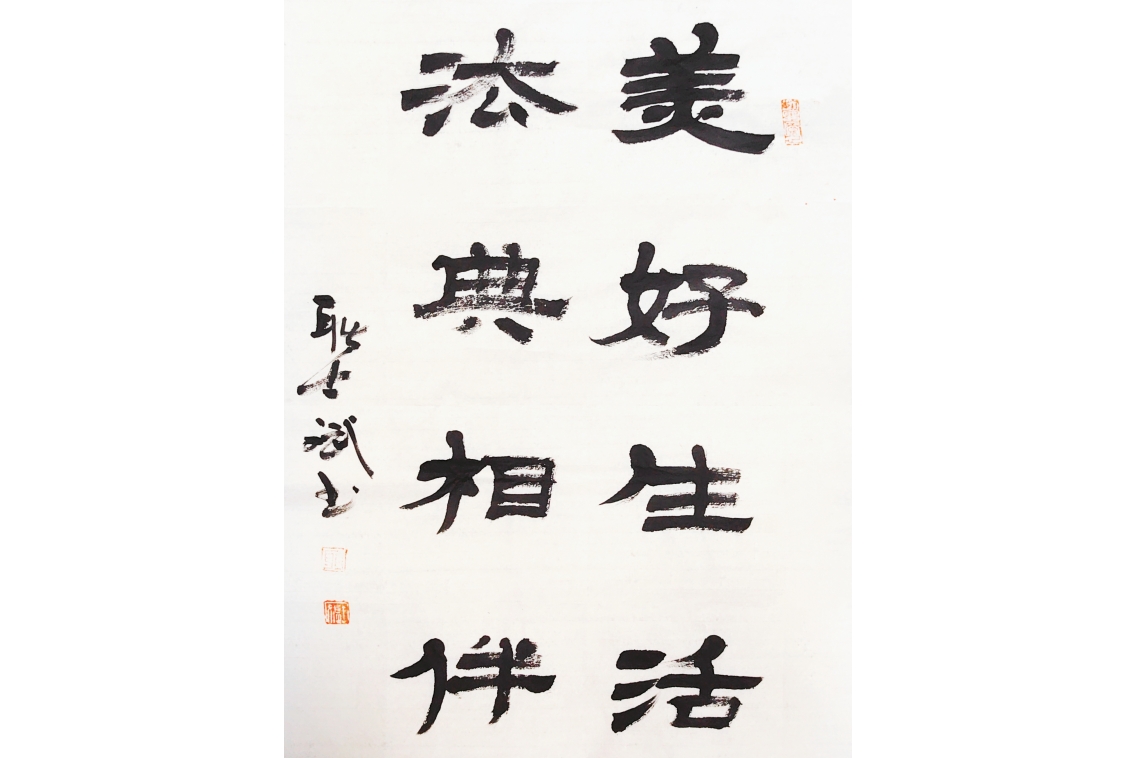 美好生活
法典相伴
耿士斌书